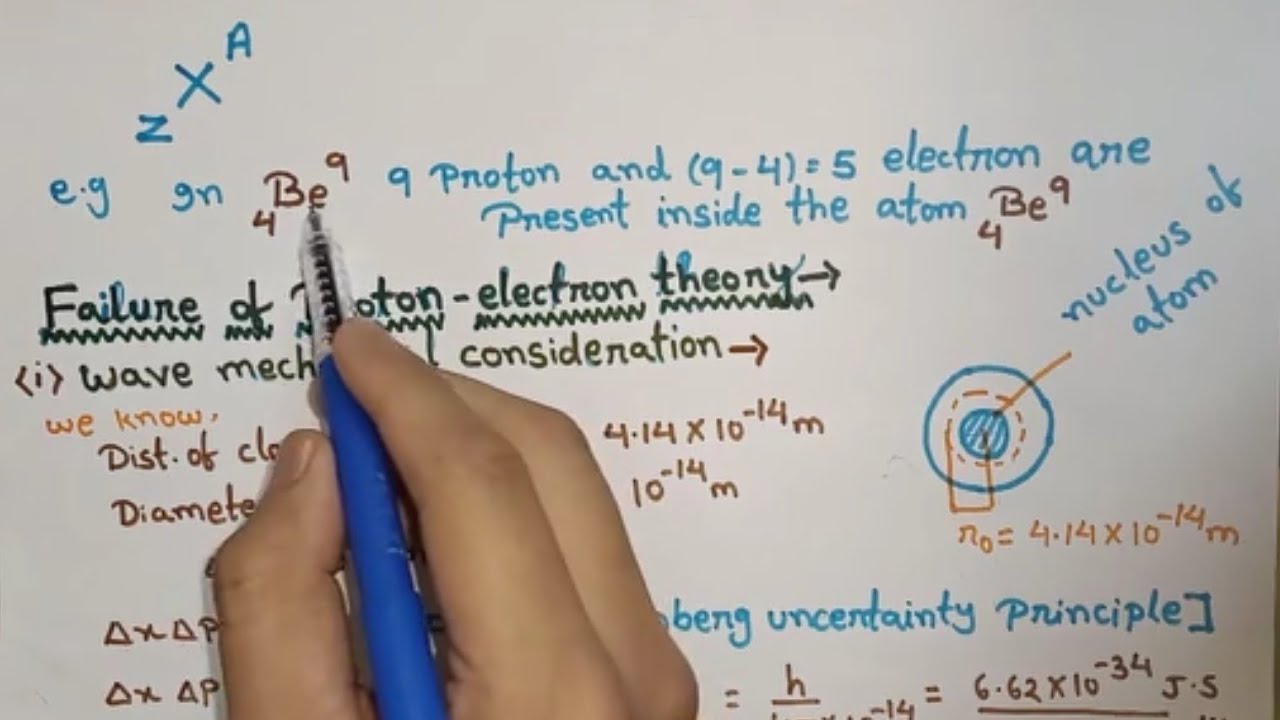 z X A
e.g In 4Be9 9 Proton and (9-4)=5 electron are
Present inside the atom 4Be9
Failure of oton-electron theory→
(i) wave mech l consideration→
nucleus of
atom
we know,
Dist. of clo 4.14 × 10^-14 m
Diamete 10^-14 m
r0 = 4.14 × 10^-14 m
Δx Δp = nberg uncertainty Principle]
Δx Δp = h = 6.62 × 10^-34 J.S
×10^-14